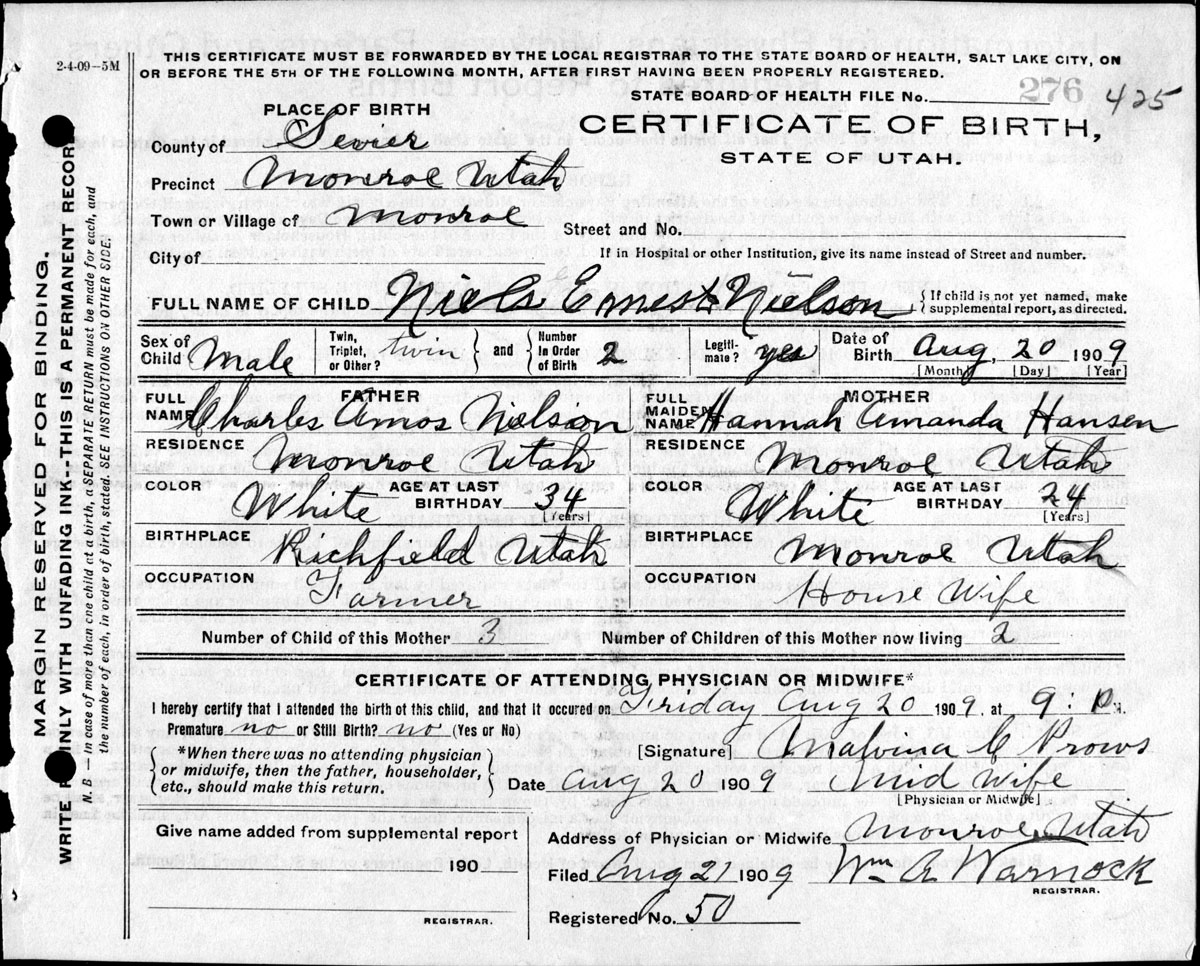 2-4-09-5M
THIS CERTIFICATE MUST BE FORWARDED BY THE LOCAL REGISTRAR TO THE STATE BOARD OF HEALTH, SALT LAKE CITY, ON
OR BEFORE THE 5TH OF THE FOLLOWING MONTH, AFTER FIRST HAVING BEEN PROPERLY REGISTERED.
STATE BOARD OF HEALTH FILE No. 276 425
PLACE OF BIRTH
CERTIFICATE OF BIRTH,
STATE OF UTAH.
County of Sevier
Precinct Monroe Utah
Town or Village of Monroe
Street and No.
City of
If in Hospital or other Institution, give its name instead of Street and number.
FULL NAME OF CHILD Niels Ernest Nielson { If child is not yet named, make supplemental report, as directed.
Sex of Child Male Twin, Triplet, or Other? twin } and { Number in Order of Birth 2 Legiti- mate? yes Date of Birth Aug. 20 1909
[Month] [Day] [Year]
FATHER MOTHER
FULL NAME Charles Amos Nelson FULL MAIDEN NAME Hannah Amanda Hansen
RESIDENCE Monroe Utah RESIDENCE Monroe Utah
COLOR White AGE AT LAST BIRTHDAY 34 [Years] COLOR White AGE AT LAST BIRTHDAY 24 [Years]
BIRTHPLACE Richfield Utah BIRTHPLACE Monroe Utah
OCCUPATION Farmer OCCUPATION House Wife
Number of Child of this Mother 3 Number of Children of this Mother now living 2
CERTIFICATE OF ATTENDING PHYSICIAN OR MIDWIFE*
I hereby certify that I attended the birth of this child, and that it occured on Friday Aug 20 1909, at 9: P M.
Premature no or Still Birth? no (Yes or No)
*When there was no attending physician
or midwife, then the father, householder,
etc., should make this return.
[Signature] Malvina C Prows
Date Aug 20 1909 Mid Wife
[Physician or Midwife]
Give name added from supplemental report
190
REGISTRAR.
Address of Physician or Midwife Monroe, Utah
Filed Aug 21 1909 Wm A Warnock
REGISTRAR.
Registered No. 50
MARGIN RESERVED FOR BINDING.
WRITE PLAINLY WITH UNFADING INK--THIS IS A PERMANENT RECORD.
N. B.—In case of more than one child at a birth, a SEPARATE RETURN must be made for each, and
the number of each, in order of birth, stated. SEE INSTRUCTIONS ON OTHER SIDE.